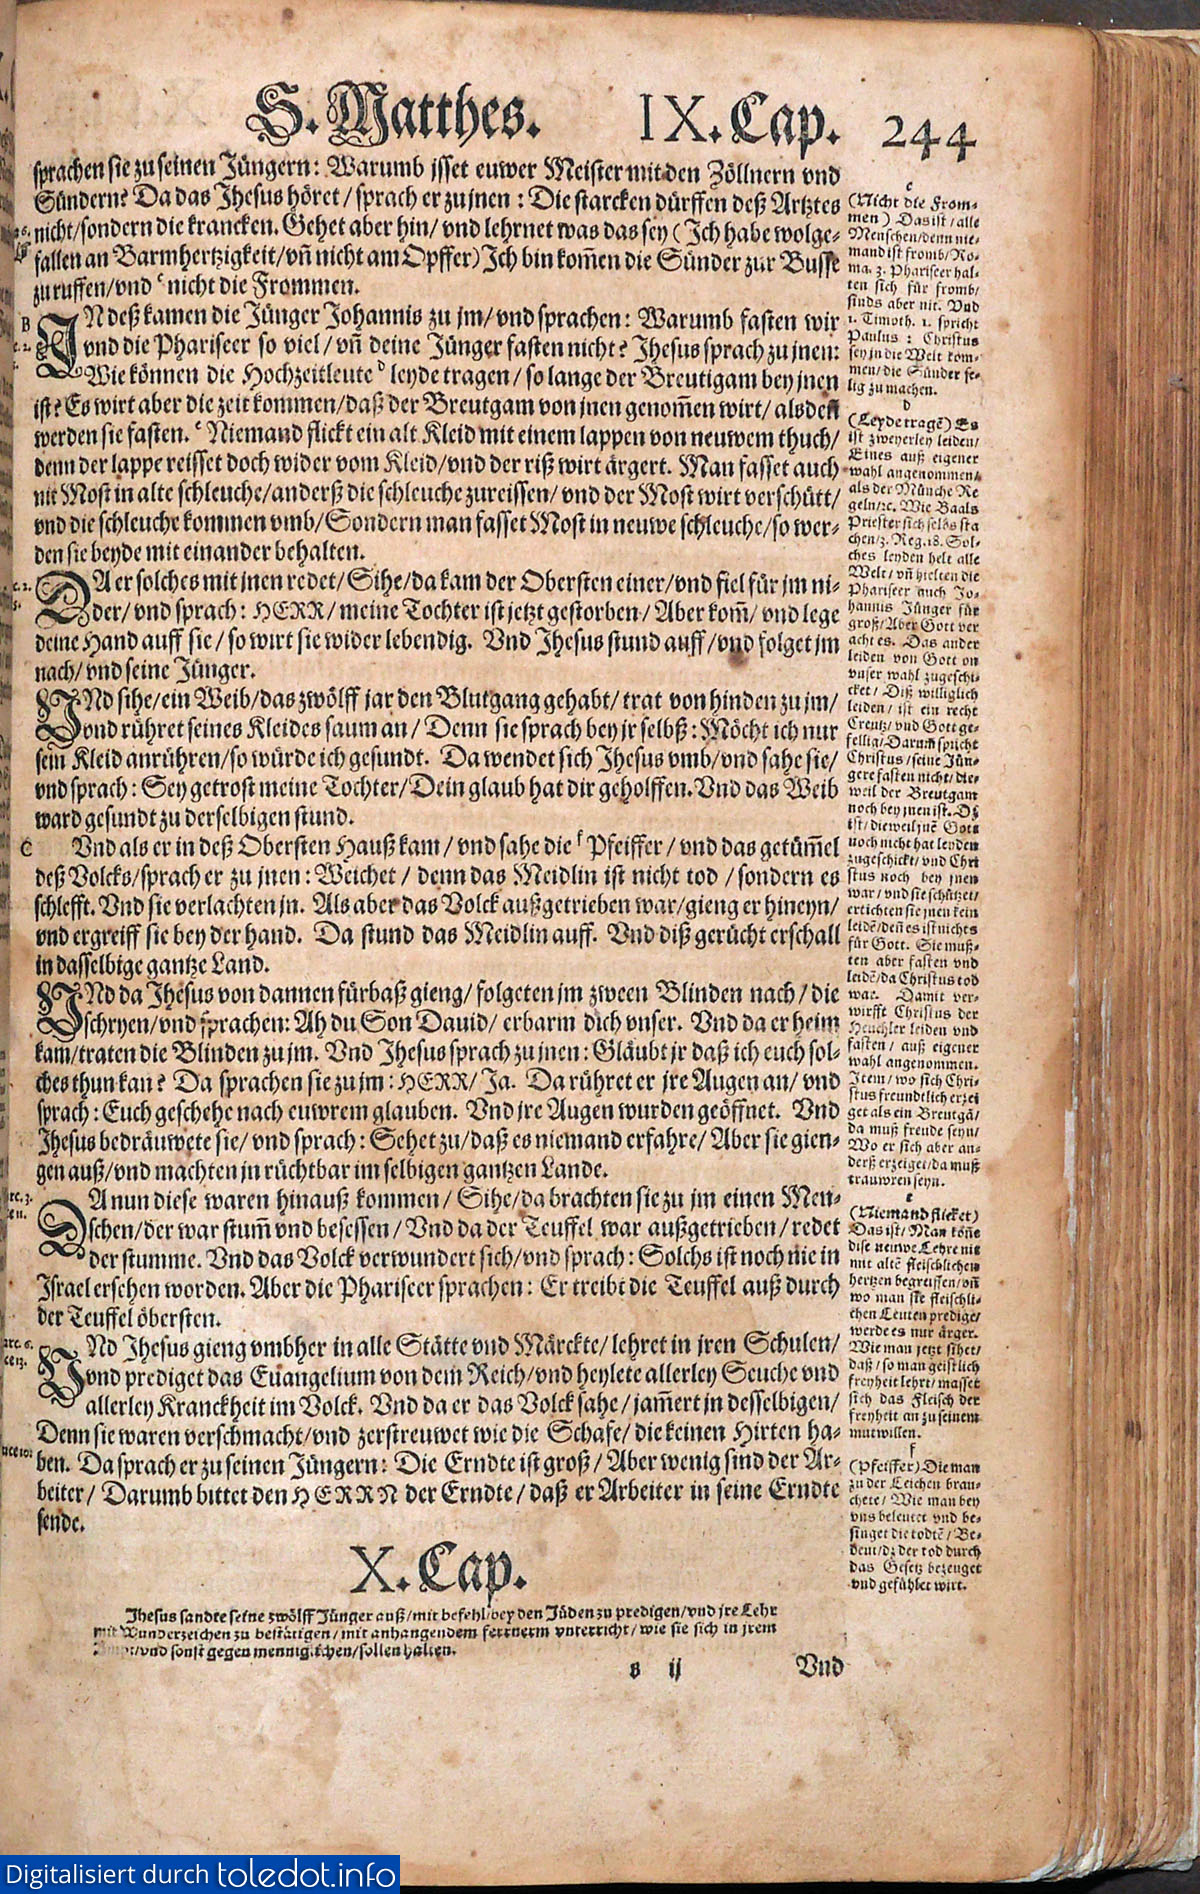 S. Matthes. IX. Cap. 244
sprachen sie zu seinen Jüngern: Warumb isset euwer Meister mit den Zöllnern vnd
Sündern? Da das Jhesus höret / sprach er zu jnen : Die starcken dürffen deß Artztes
nicht/sondern die krancken. Gehet aber hin/ vnd lehrnet was das sey (Ich habe wolge-
fallen an Barmhertzigkeit/vñ nicht am Opffer) Ich bin kom̃en die Sünder zur Busse
zu ruffen/vnd c nicht die Frommen.
B
INdeß kamen die Jünger Johannis zu jm/ vnd sprachen: Warumb fasten wir
vnd die Phariseer so viel/ vñ deine Jünger fasten nicht? Jhesus sprach zu jnen:
Wie können die Hochzeitleute d leyde tragen/ so lange der Breutigam bey jnen
ist? Es wirt aber die zeit kommen/daß der Breutgam von jnen genom̃en wirt/ als deñ
werden sie fasten. e Niemand flickt ein alt Kleid mit einem lappen von neuwem thuch/
denn der lappe reisset doch wider vom Kleid/vnd der riß wirt ärgert. Man fasset auch
nit Most in alte schleuche/anderß die schleuche zureissen/ vnd der Most wirt verschütt/
vnd die schleuche kommen vmb/ Sondern man fasset Most in neuwe schleuche/so wer-
den sie beyde mit einander behalten.
DA er solches mit jnen redet/ Sihe/da kam der Obersten einer/vnd fiel für jm ni-
der/ vnd sprach: HERR/ meine Tochter ist jetzt gestorben/ Aber kom̃/ vnd lege
deine Hand auff sie/ so wirt sie wider lebendig. Vnd Jhesus stund auff/vnd folget jm
nach/ vnd seine Jünger.
VNd sihe/ein Weib/das zwölff jar den Blutgang gehabt/ trat von hinden zu jm/
vnd rühret seines Kleides saum an/ Denn sie sprach bey jr selbß: Möcht ich nur
sein Kleid anrühren/so würde ich gesundt. Da wendet sich Jhesus vmb/vnd sahe sie/
vnd sprach: Sey getrost meine Tochter/Dein glaub hat dir geholffen. Vnd das Weib
ward gesundt zu derselbigen stund.
C Vnd als er in deß Obersten Hauß kam/ vnd sahe die f Pfeiffer/ vnd das getüm̃el
deß Volcks/sprach er zu jnen: Weichet/ denn das Meidlin ist nicht tod/sondern es
schlefft. Vnd sie verlachten jn. Als aber das Volck außgetrieben war/gieng er hineyn/
vnd ergreiff sie bey der hand. Da stund das Meidlin auff. Vnd diß gerücht erschall
in dasselbige gantze Land.
VNd da Jhesus von dannen fürbaß gieng/ folgeten jm zween Blinden nach/ die
schryen/vnd sprachen: Ah du Son Dauid/ erbarm dich vnser. Vnd da er heim
kam/traten die Blinden zu jm. Vnd Jhesus sprach zu jnen: Gläubt jr daß ich euch sol-
ches thun kan? Da sprachen sie zu jm: HERR/ Ja. Da rühret er jre Augen an/ vnd
sprach: Euch geschehe nach euwrem glauben. Vnd jre Augen wurden geöffnet. Vnd
Jhesus bedräuwete sie/ vnd sprach: Sehet zu/ daß es niemand erfahre/ Aber sie gien-
gen auß/vnd machten jn rüchtbar im selbigen gantzen Lande.
DA nun diese waren hinauß kommen/ Sihe/da brachten sie zu jm einen Men-
schen/der war stum̃ vnd besessen/ Vnd da der Teuffel war außgetrieben/ redet
der stumme. Vnd das Volck verwundert sich/vnd sprach: Solchs ist noch nie in
Israel ersehen worden. Aber die Phariseer sprachen: Er treibt die Teuffel auß durch
der Teuffel öbersten.
VNd Jhesus gieng vmbher in alle Stätte vnd Märckte/ lehret in jren Schulen/
vnd prediget das Euangelium von dem Reich/vnd heylete allerley Seuche vnd
allerley Kranckheit im Volck. Vnd da er das Volck sahe/ jam̃ert jn desselbigen/
Denn sie waren verschmacht/vnd zerstreuwet wie die Schafe/ die keinen Hirten ha-
ben. Da sprach er zu seinen Jüngern: Die Erndte ist groß/ Aber wenig sind der Ar-
beiter/ Darumb bittet den HERRN der Erndte/ daß er Arbeiter in seine Erndte
sende.
X. Cap.
Jhesus sandte seine zwölff Jünger auß/mit befehl/bey den Jüden zu predigen/vnd jre Lehr
mit Wunderzeichen zu bestätigen/ mit anhangendem ferrnerm vnterricht/ wie sie sich in jrem
vnd sonst gegen menniglichen/sollen halten.
v ij Vnd
c
(Nicht die From-
men) Das ist/alle
Menschen/denn nie-
mand ist fromb/Ro-
ma. 3. Phariseer hal-
ten sich für fromb/
sinds aber nit. Vnd
1. Timoth. 1. spricht
Paulus: Christus
sey in die Welt kom-
men/die Sünder se-
lig zu machen.
d
(Leyde tragẽ) Es
ist zweyerley leiden/
Eines auß eigener
wahl angenommen/
als der Münche Re
geln/rc. Wie Baals
Priester sich selbs sta
chen/3. Reg. 18. Sol-
ches leyden helt alle
Welt/ vñ hielten die
Phariseer auch Jo-
hannis Jünger für
groß/Aber Gott ver
acht es. Das ander
leiden von Gott on
vnser wahl zugeschi-
cket/ Diß williglich
leiden/ ist ein recht
Creutz/vnd Gott ge-
fellig/Darum̃ spricht
Christus/seine Jün-
gere fasten nicht/die-
weil der Breutgam
noch bey jnen ist. Dz
ist/dieweil jnẽ Gott
noch nicht hat leyden
zugeschickt/vnd Chri
stus noch bey jnen
war/vnd sie schützet/
ertichten sie jnen kein
leidẽ/deñ es ist nichts
für Gott. Sie muß-
ten aber fasten vnd
leidẽ/da Christus tod
war. Damit ver-
wirfft Christus der
Heuchler leiden vnd
fasten/ auß eigener
wahl angenommen.
Item/ wo sich Chri-
stus freundtlich erzei
get als ein Breutgã/
da muß freude seyn/
Wo er sich aber an-
derß erzeiget/da muß
trauwren seyn.
e
(Niemand flicket)
Das ist/ Man köñe
dise neuwe Lehre nit
mit altẽ fleischlichen
hertzen begreiffen/vñ
wo man sie fleischli-
chen Leuten predige/
werde es nur ärger.
Wie man jetzt sihet/
daß/so man geistlich
freyheit lehrt/masset
sich das Fleisch der
freyheit an zu seinem
mutwillen.
f
(Pfeiffer) Die man
zu der Leichen brau-
chete/ Wie man bey
vns beleutet vnd be-
singet die todtẽ/ Be-
deut/dz der tod durch
das Gesetz bezeuget
vnd gefühlet wirt.
Digitalisiert durch toledot.info